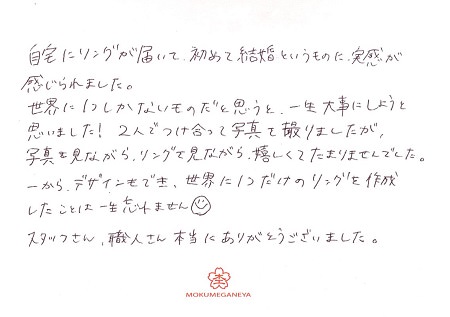 自宅にリングが届いて、初めて結婚というものに、実感が
感じられました。
世界に1つしかないものだと思うと、一生大事にしようと
思いました！ 2人でつけ合って写真を撮りましたが、
写真を見ながら、リングを見ながら、嬉しくてたまりませんでした。
一から、デザインもでき、世界に1つだけのリングを作成
したことは一生忘れません☺
スタッフさん、職人さん本当にありがとうございました。
MOKUMEGANEYA